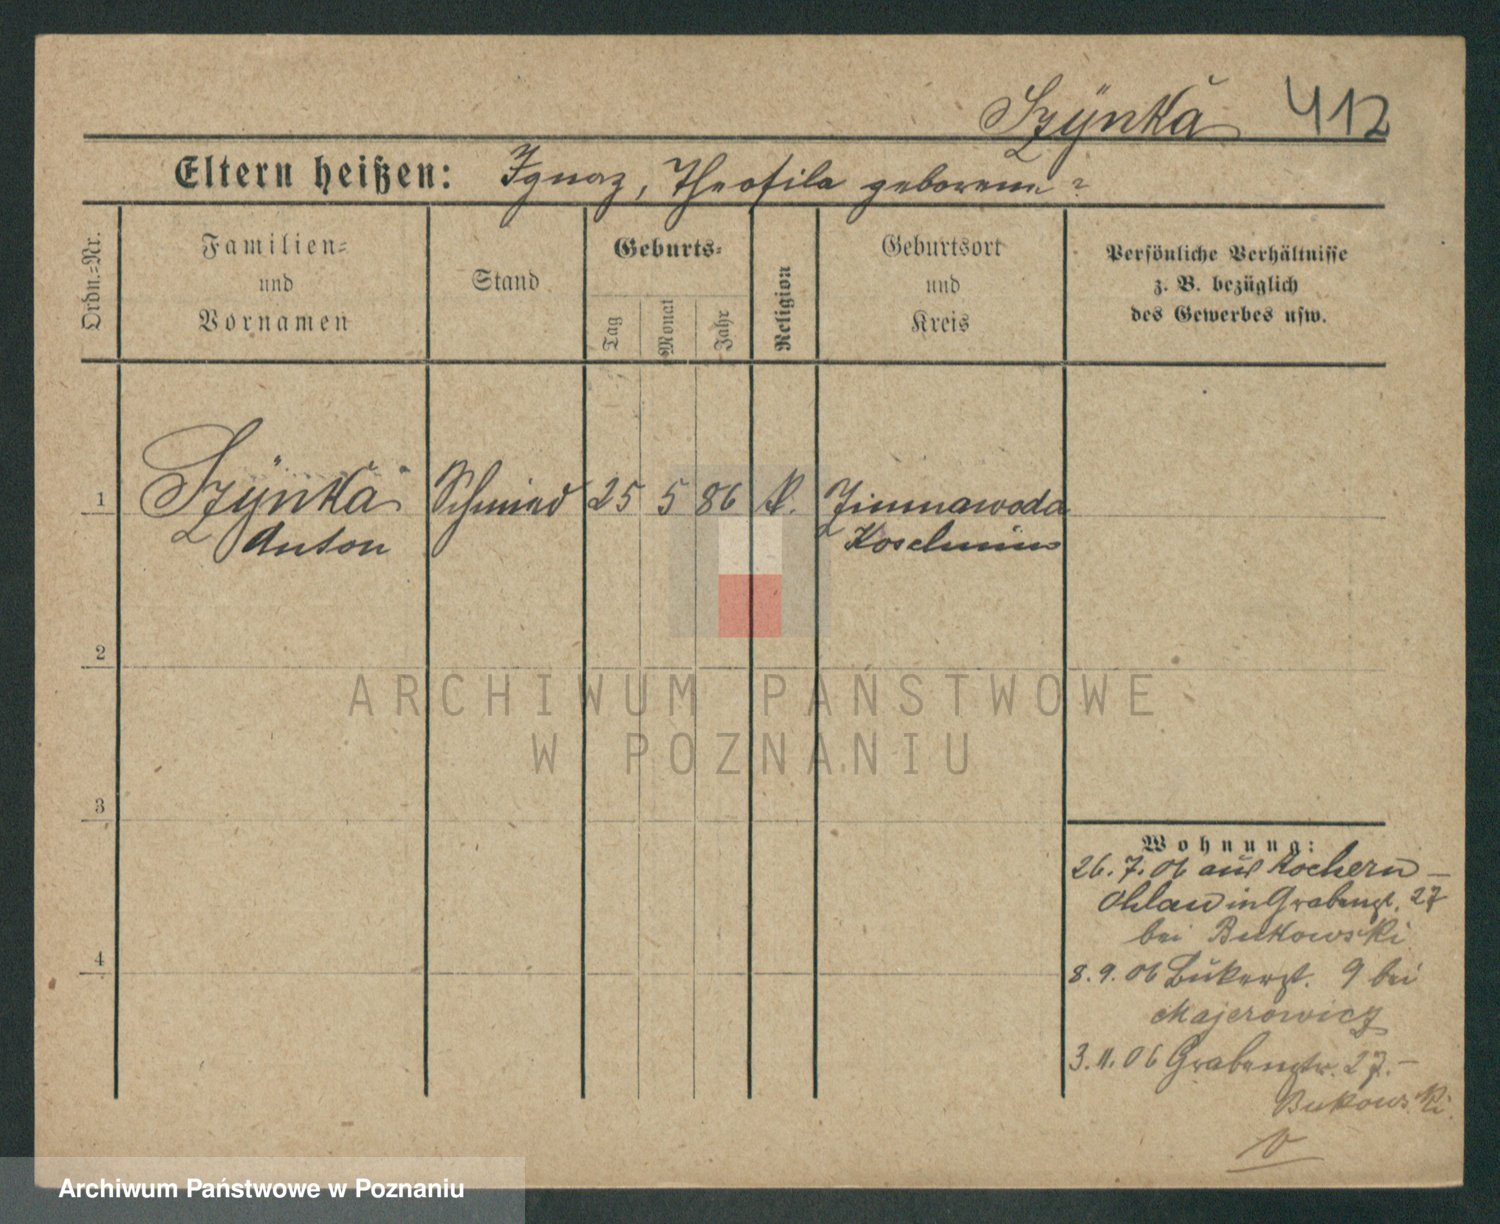 Szÿnka 412
Eltern heißen: Ignaz, Theofila geborene ?
Ordn.=Nr.
Familien=
und
Vornamen
Stand
Geburts=
Tag
Monat
Jahr
Religion
Geburtsort
und
Kreis
Persönliche Verhältnisse
z. B. bezüglich
des Gewerbes usw.
1 Szÿnka Schmied 25 5 86 k. Zimnawoda
Anton Koschmin
2
ARCHIWUM PAŃSTWOWE
W POZNANIU
3
Wohnung:
26.7.06 aus Kochern-
Ohlau in Grabenst. 27
bei Bukowski
4
8.9.06 Bükerst. 9 bei
Majerowicz
3.11.06 Grabenstr. 27.-
Bukowski
Archiwum Państwowe w Poznaniu